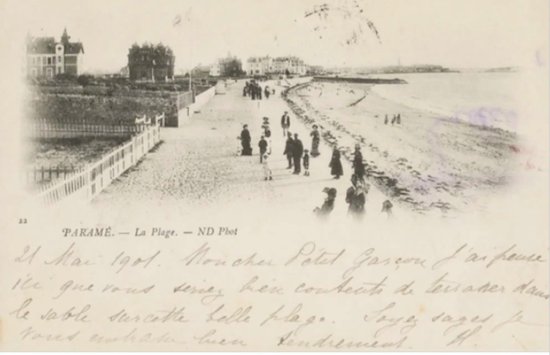 22
PARAMÉ. — La Plage. — ND Phot
21 Mai 1901. Mon cher Petit Garçon J'ai pensé
ici que vous seriez bien contents de terrasser dans
le sable sur cette belle plage. Soyez sages je
vous embrasse bien tendrement